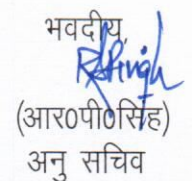 भवदीय,
RPSingh
(आर०पी०सिंह)
अनु सचिव